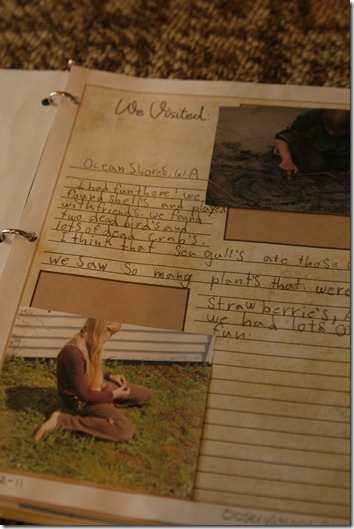 We Visited:
Ocean Shores, WA
I had fun there! we
found shell's and played
with friends. we found
two dead bird's and
lots of dead crab's.
I think that sea gull's ate those
we saw so many plants that were
strawberrie's,
we had lots of
fun.
2-11